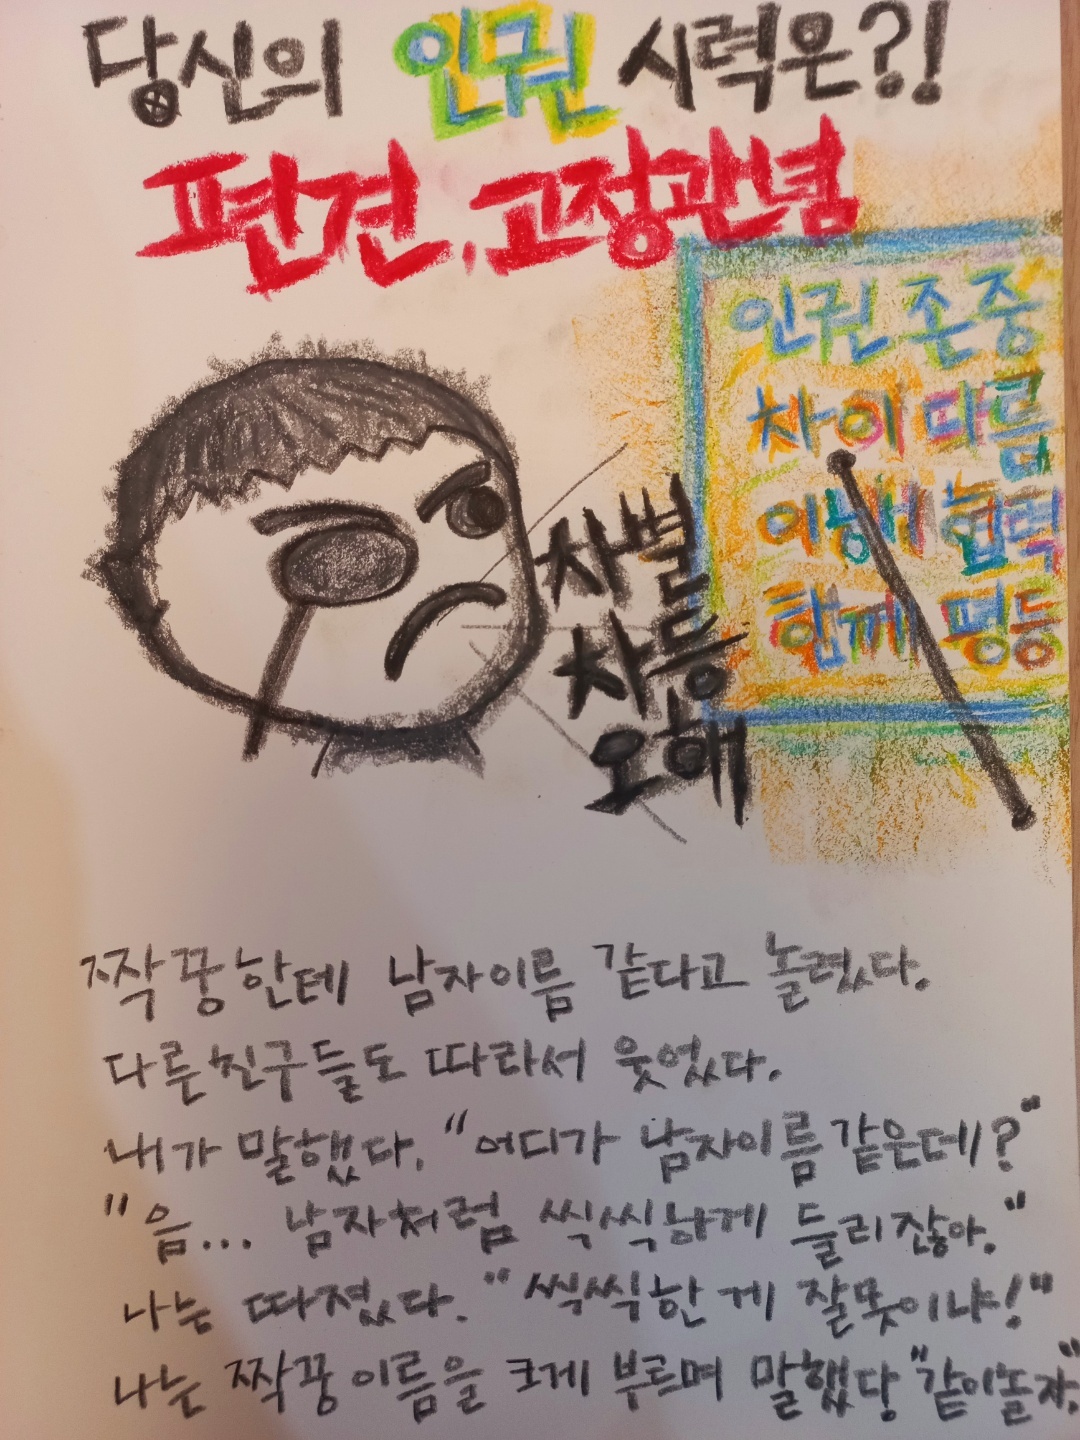 당신의 인권 시력은?!
편견, 고정관념
인권 존중
차이 다름
이해 협력
함께 평등
차별
차등
오해
짝꿍한테 남자이름 같다고 놀렸다.
다른친구들도 따라서 웃었다.
내가 말했다. "어디가 남자이름같은데?"
"음... 남자처럼 씩씩하게 들리잖아."
나는 따졌다. "씩씩한 게 잘못이냐!"
나는 짝꿍이름을 크게 부르며 말했당 "같이놀자."